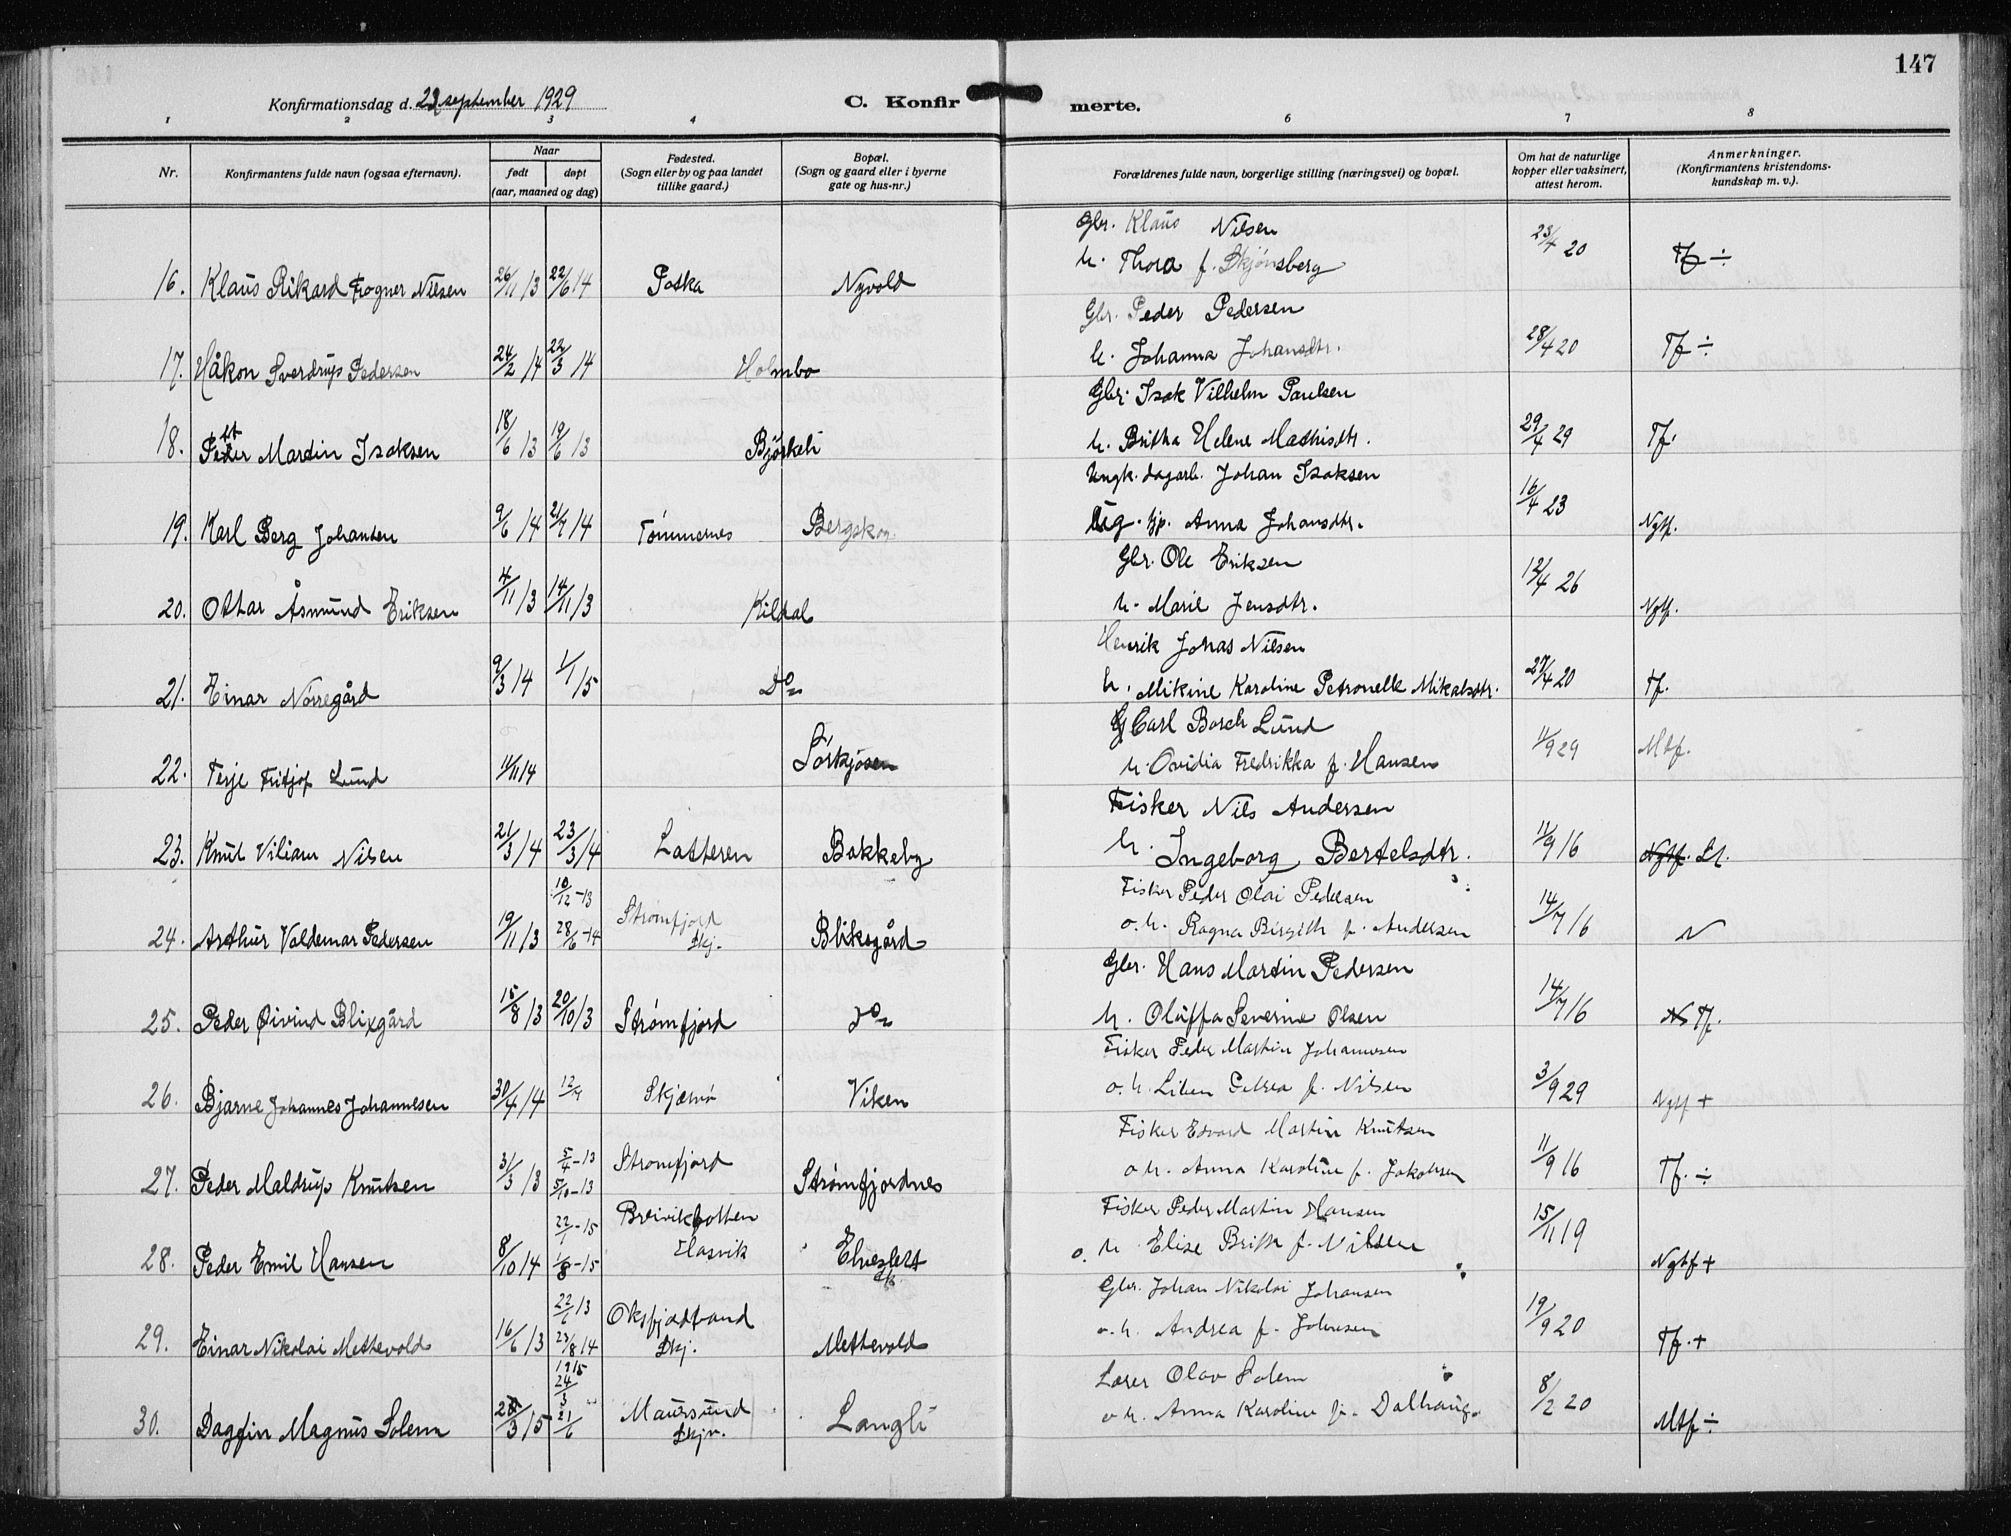 147
Konfirmationsdag d. 29 september 1929 C. Konfir merte.
1 2 3 4 6 7 8
Nr. Konfirmantens fulde navn (ogsaa efternavn). Naar født døpt (aar, maaned og dag) Fødested. (Sogn eller by og paa landet tillike gaard.) Bopæl. (Sogn og gaard eller i byerne gate og hus-nr.) Forældrenes fulde navn, borgerlige stilling (næringsvei) og bopæl. Om hat de naturlige kopper eller vaksinert, attest herom. Anmerkninger. (Konfirmantens kristendoms-kundskap m. v.).
Gbr. Klaus Nilsen
16. Klaus Rikard Fogner Nilsen 26/11 13 22/6 14 Potka Nyvold h. Thora f. Skjønsberg 23/4 20 Tf ÷
Gbr. Peder Pedersen
17. Håkon Sverdrup Pedersen 24/2 14 22/3 14 Holmbo h. Johanna Johansdtr. 28/4 20 Tf ÷
Gbr. Isak Vilhelm Paulsen
18. Peder Martin Isaksen 18/6 13 19/6 13 Bjørkeli h. Britha Helene Mathisdtr. 29/4 29 Tf.
Ungk. dagarb. Johan Isaksen
19. Karl Berg Johansen 9/6 14 21/7 14 Tømmernes Bergskog. Ug. tjp. Anna Johansdtr. 16/4 23 Ngtf.
Gbr. Ole Eriksen
20. Othar Åsmund Eriksen 4/11 13 14/11 13 Kildal h. Marie Jensdtr. 12/4 26 Ngtf.
Henrik Johas Nilsen
21. Einar Nørregård 9/3 14 1/1 15 Do h. Mikine Karoline Petronelle Mikalsdtr. 27/4 20 Tf.
G Carl Borch Lund
22. Terje Fritjof Lund 11/11 14 Sørkjosen h. Ovidia Fredrikka f. Hansen 11/9 29 Mtf.
Fisker Nils Andersen
23. Knut Viliam Nilsen 21/3 14 23/3 14 Latteren Bakkeby h. Ingeborg Bertelsdtr. 11/9 16 Ngtf.
10/12-13 Fisker Peder Olai Pedersen
24. Arthur Valdemar Pedersen 19/11 13 28/6-14 Strømfjord Skj. Bliksgård o. h. Ragna Birgith f. Andersen 14/7 16 N
Gbr. Hans Martin Pedersen
25. Peder Øivind Blixgård 15/8 13 20/10 13 Strømfjord Do h. Oluffa Severine Olsen 14/7 16 N Tf.
Fisker Peder Martin Johannesen
26. Bjarne Johannes Johannesen 30/4 14 12/7 Skjærvø Viken o. h. Lilien Petrea f. Nilsen 3/9 29 Ngtf +
5/4-13 Fisker Edvard Martin Knutsen
27. Peder Maldrup Knutsen 31/3 13 5/10-13 Strømfjord Strømfjordnes o h. Anna Karoline f. Jakobsen 11/9 16 Tf. ÷
22/1-15 Breivikbotten Fisker Peder Martin Hansen
28. Peder Emil Hansen 8/10 14 1/8-15 Hasvik Elveslett Sk. o. h Elise Brith f. Nilsen 15/11 19 Ngtf +
22/6 13 Oksfjordvand Gbr. Johan Nikolai Johansen
29. Einar Nikolai Mettevold 16/6 13 23/8 14 Skj. Mettevold o. h. Andrea f. Johnsen 19/9 20 Tf. +
1915 24/3 Lærer Olav Solem
30. Dagfin Magnus Solem 28/3 15 21/6 Maursund Skjv. Langli o h. Anna Karoline f. Dalhaug 8/2 20 Mtf ÷